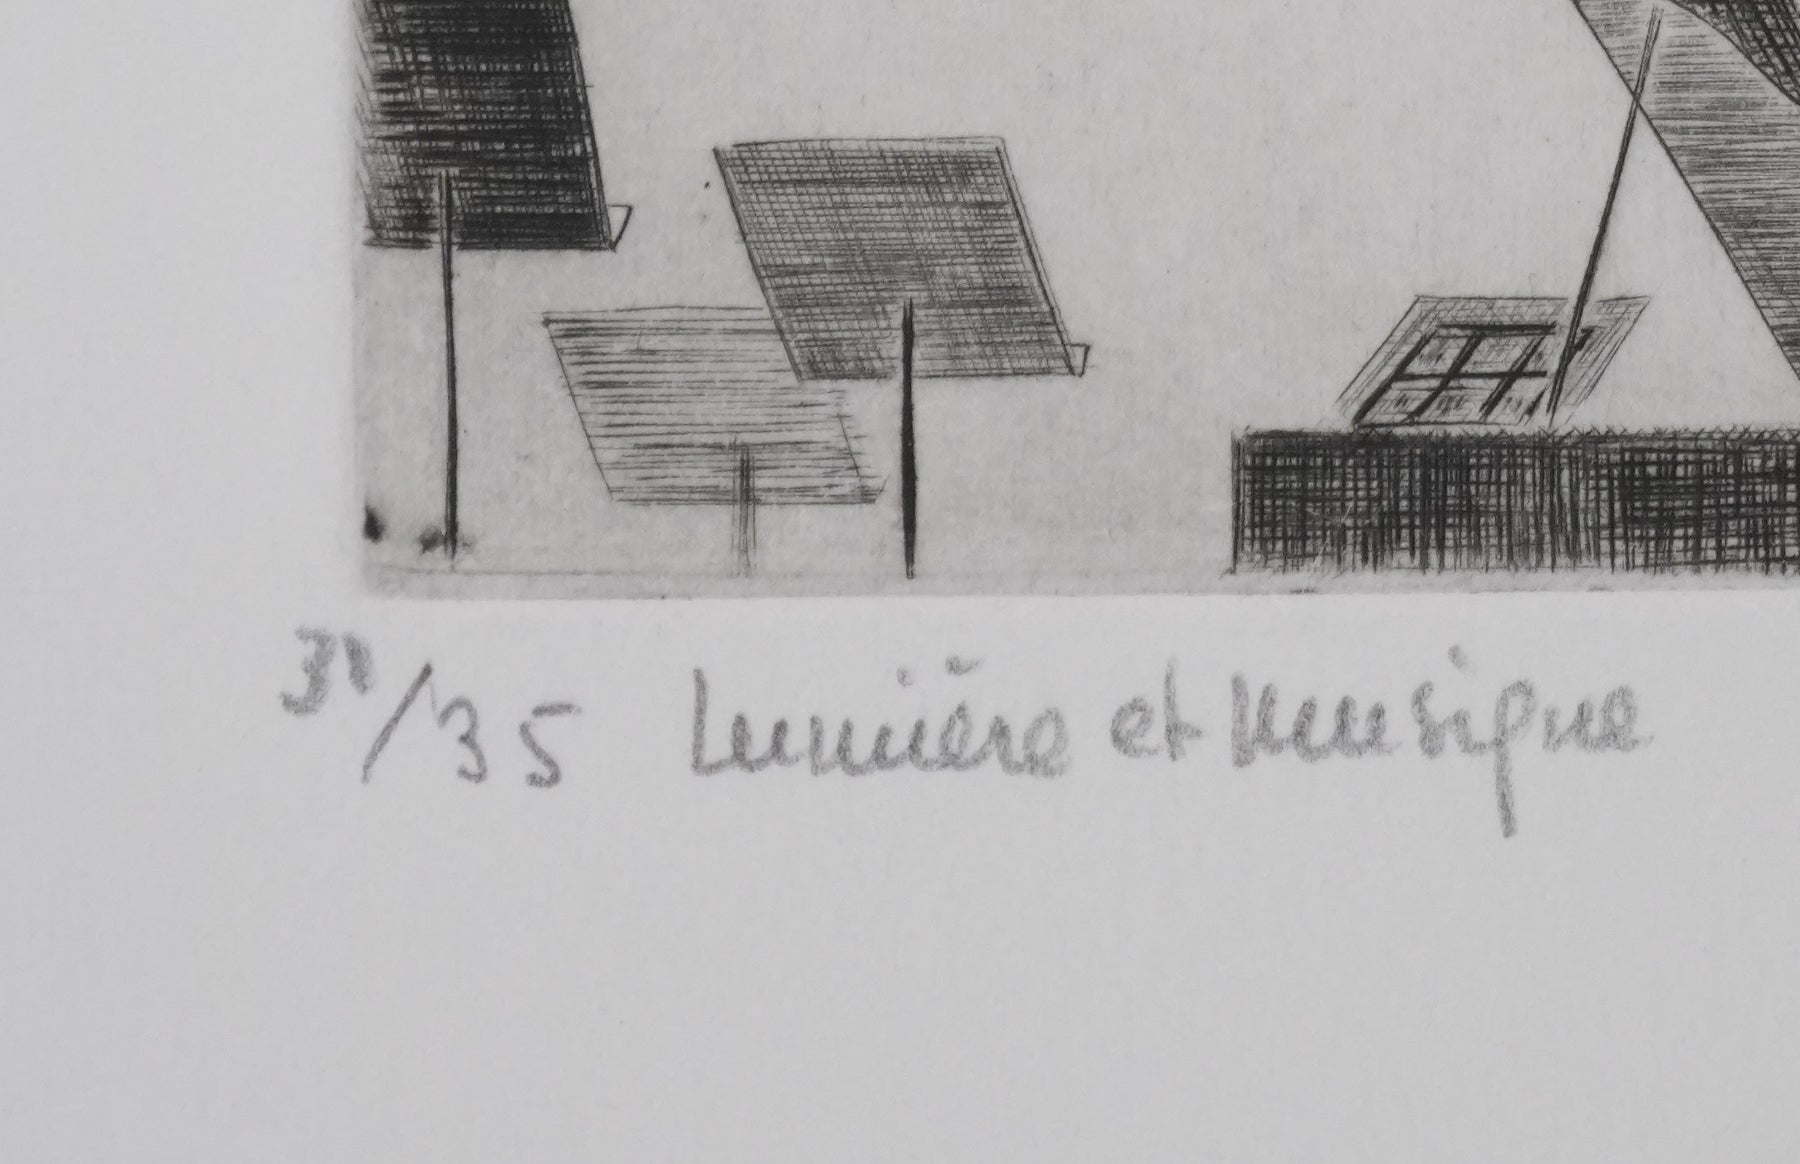 31/35 Lumière et musique